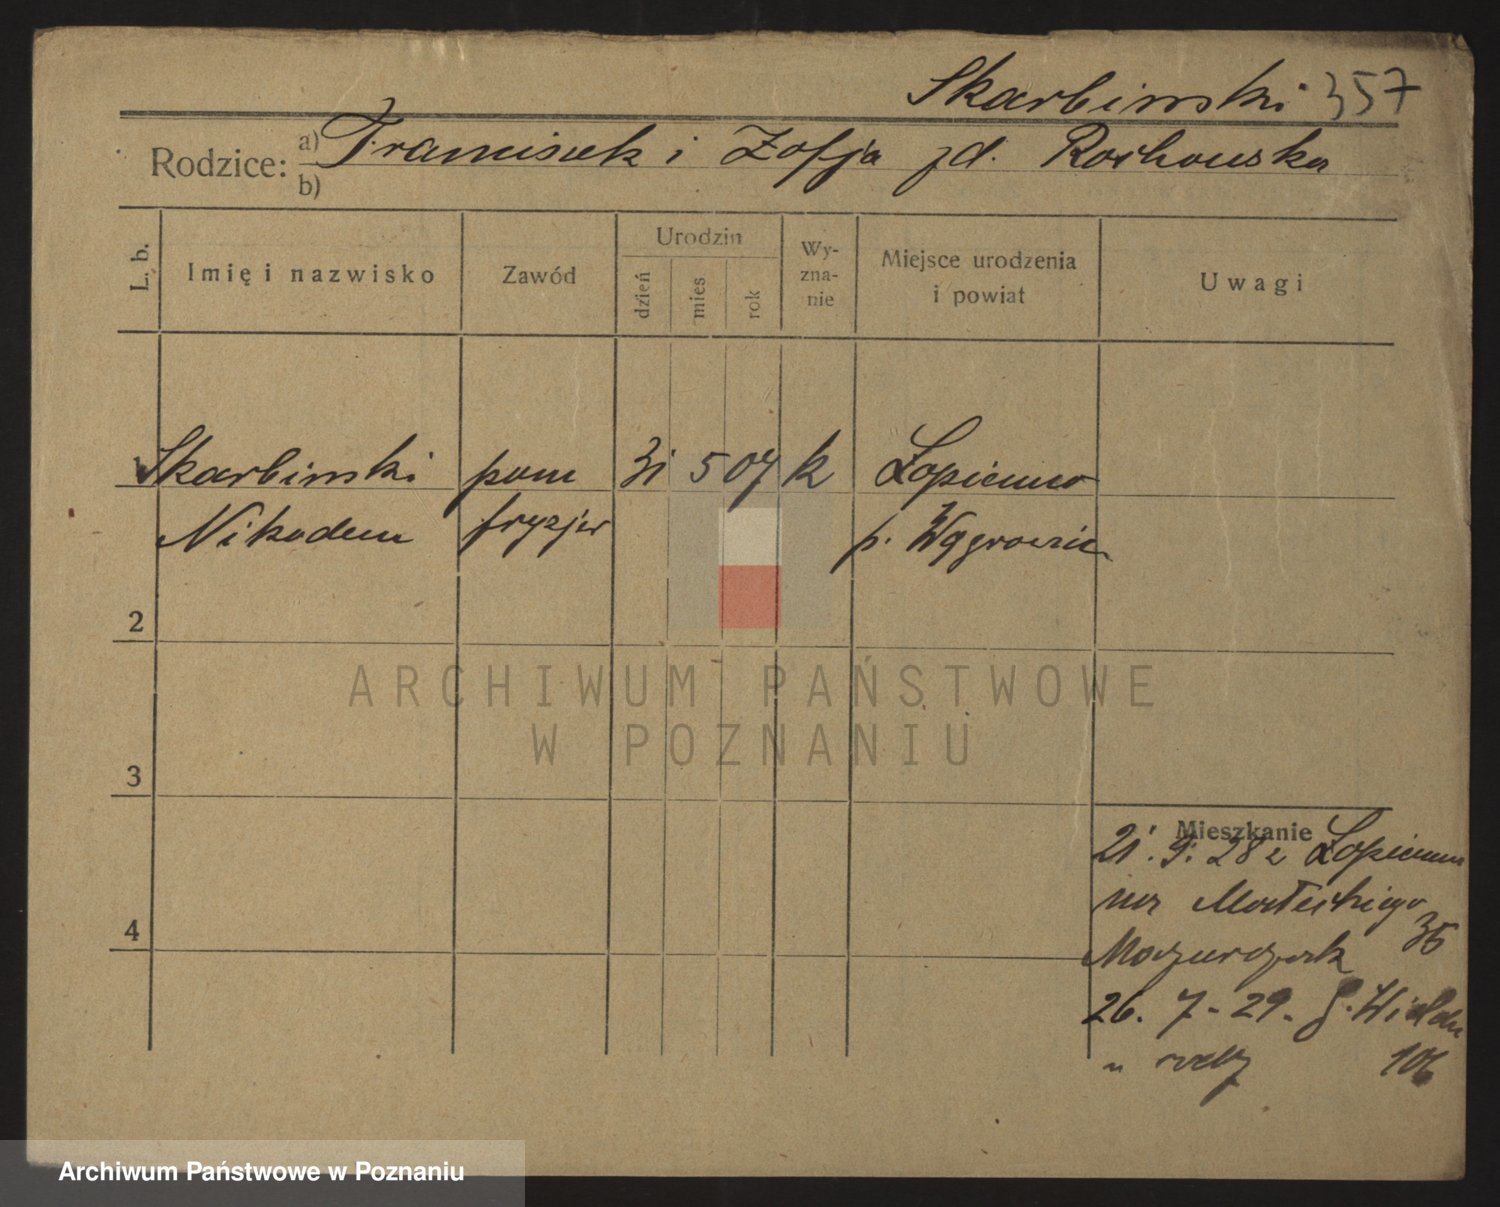 Skarbinski 357
Rodzice: a) Franciszek i Zofja zd. Rochowska
b)
L. b. Imię i nazwisko Zawód Urodzin dzień mies rok Wy-zna-nie Miejsce urodzenia i powiat Uwagi
1 Skarbinski pom 31 5 07 k Łopienno
Nikodem fryzjer p. Wągrowiec
2
ARCHIWUM PAŃSTWOWE
W POZNANIU
3
Mieszkanie
21. 9. 28 z Łopienna
na Małeckiego
Mazurczak 35
4
26. 7 - 29. G. Wilda
u 106
Archiwum Państwowe w Poznaniu